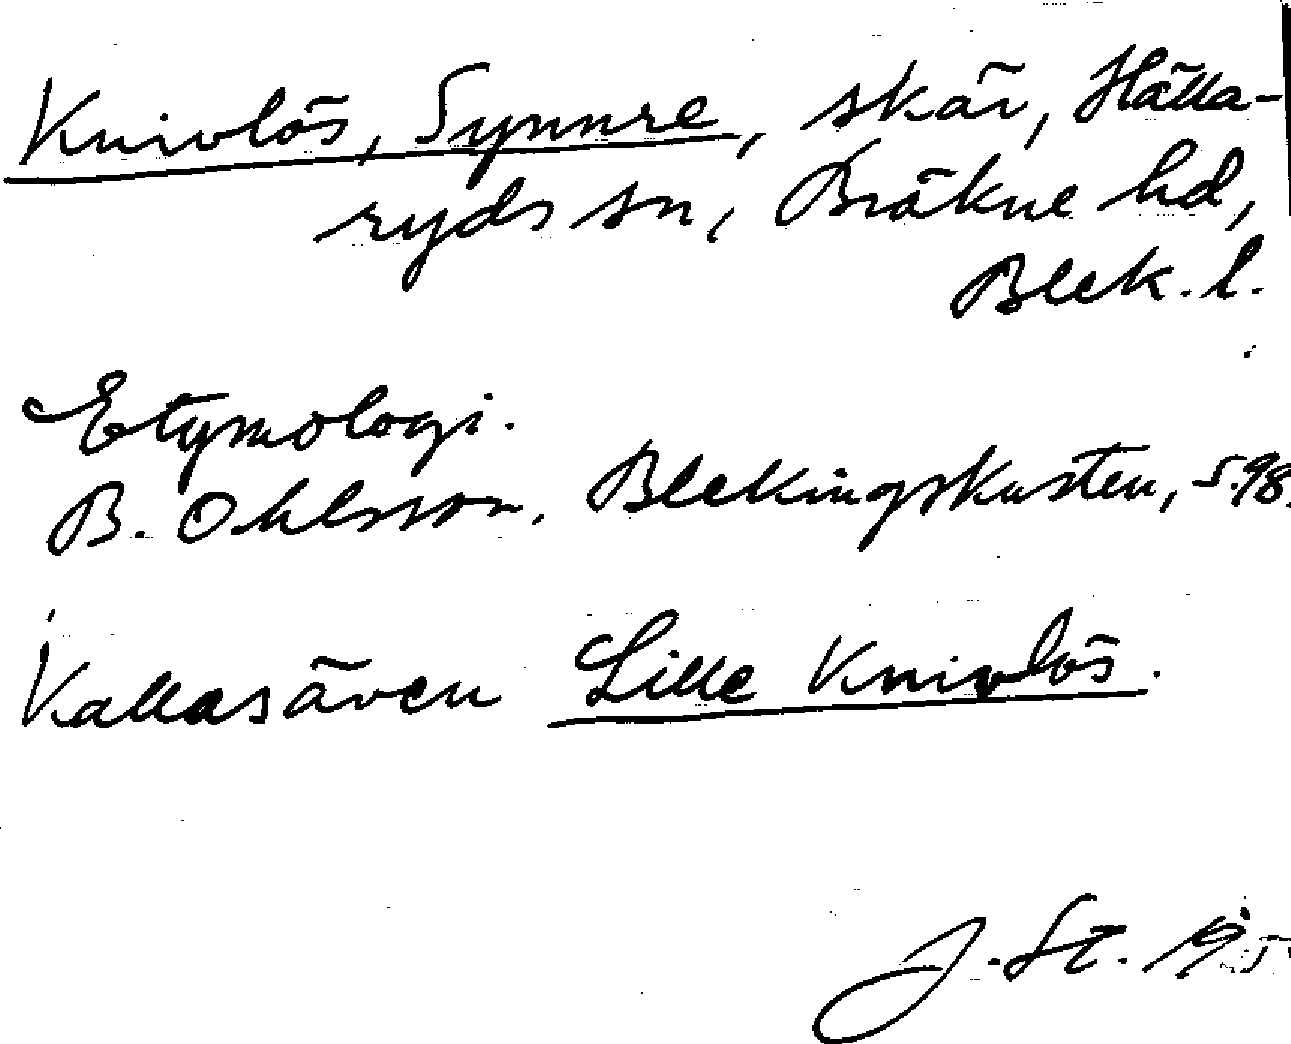 Knivlös, Synnre, skär, Hälla-
ryds sn, Bräkne hd,
Blek. l.
Etymologi.
B. Ohlsson, Blekingskusten, s. 98.
Kallas även Lille Knivlös.
J. St.